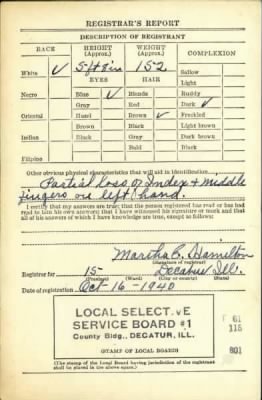 REGISTRAR'S REPORT
DESCRIPTION OF REGISTRANT
RACE HEIGHT (Approx.) WEIGHT (Approx.) COMPLEXION
White ✓ 5 ft 8 in 152 Sallow
EYES HAIR Light
Negro Blue ✓ Blonde Ruddy
Gray Red Dark ✓
Oriental Hazel Brown ✓ Freckled
Brown Black Light brown
Indian Black Gray Dark brown
Bald Black
Filipino
Other obvious physical characteristics that will aid in identification
Partial loss of Index & middle
fingers on left hand.
I certify that my answers are true; that the person registered has read or has had
read to him his own answers; that I have witnessed his signature or mark and that
all of his answers of which I have knowledge are true, except as follows:
Martha C. Hamilton
(Signature of registrar)
Registrar for 15 Decatur Ill.
(Precinct) (Ward) (City or county)
Date of registration Oct-16-1940
LOCAL SELECT VE
SERVICE BOARD #1
County Bldg., DECATUR, ILL.
61
115
801
(STAMP OF LOCAL BOARD)
(The stamp of the Local Board having jurisdiction of the registrant
shall be placed in the above space.)